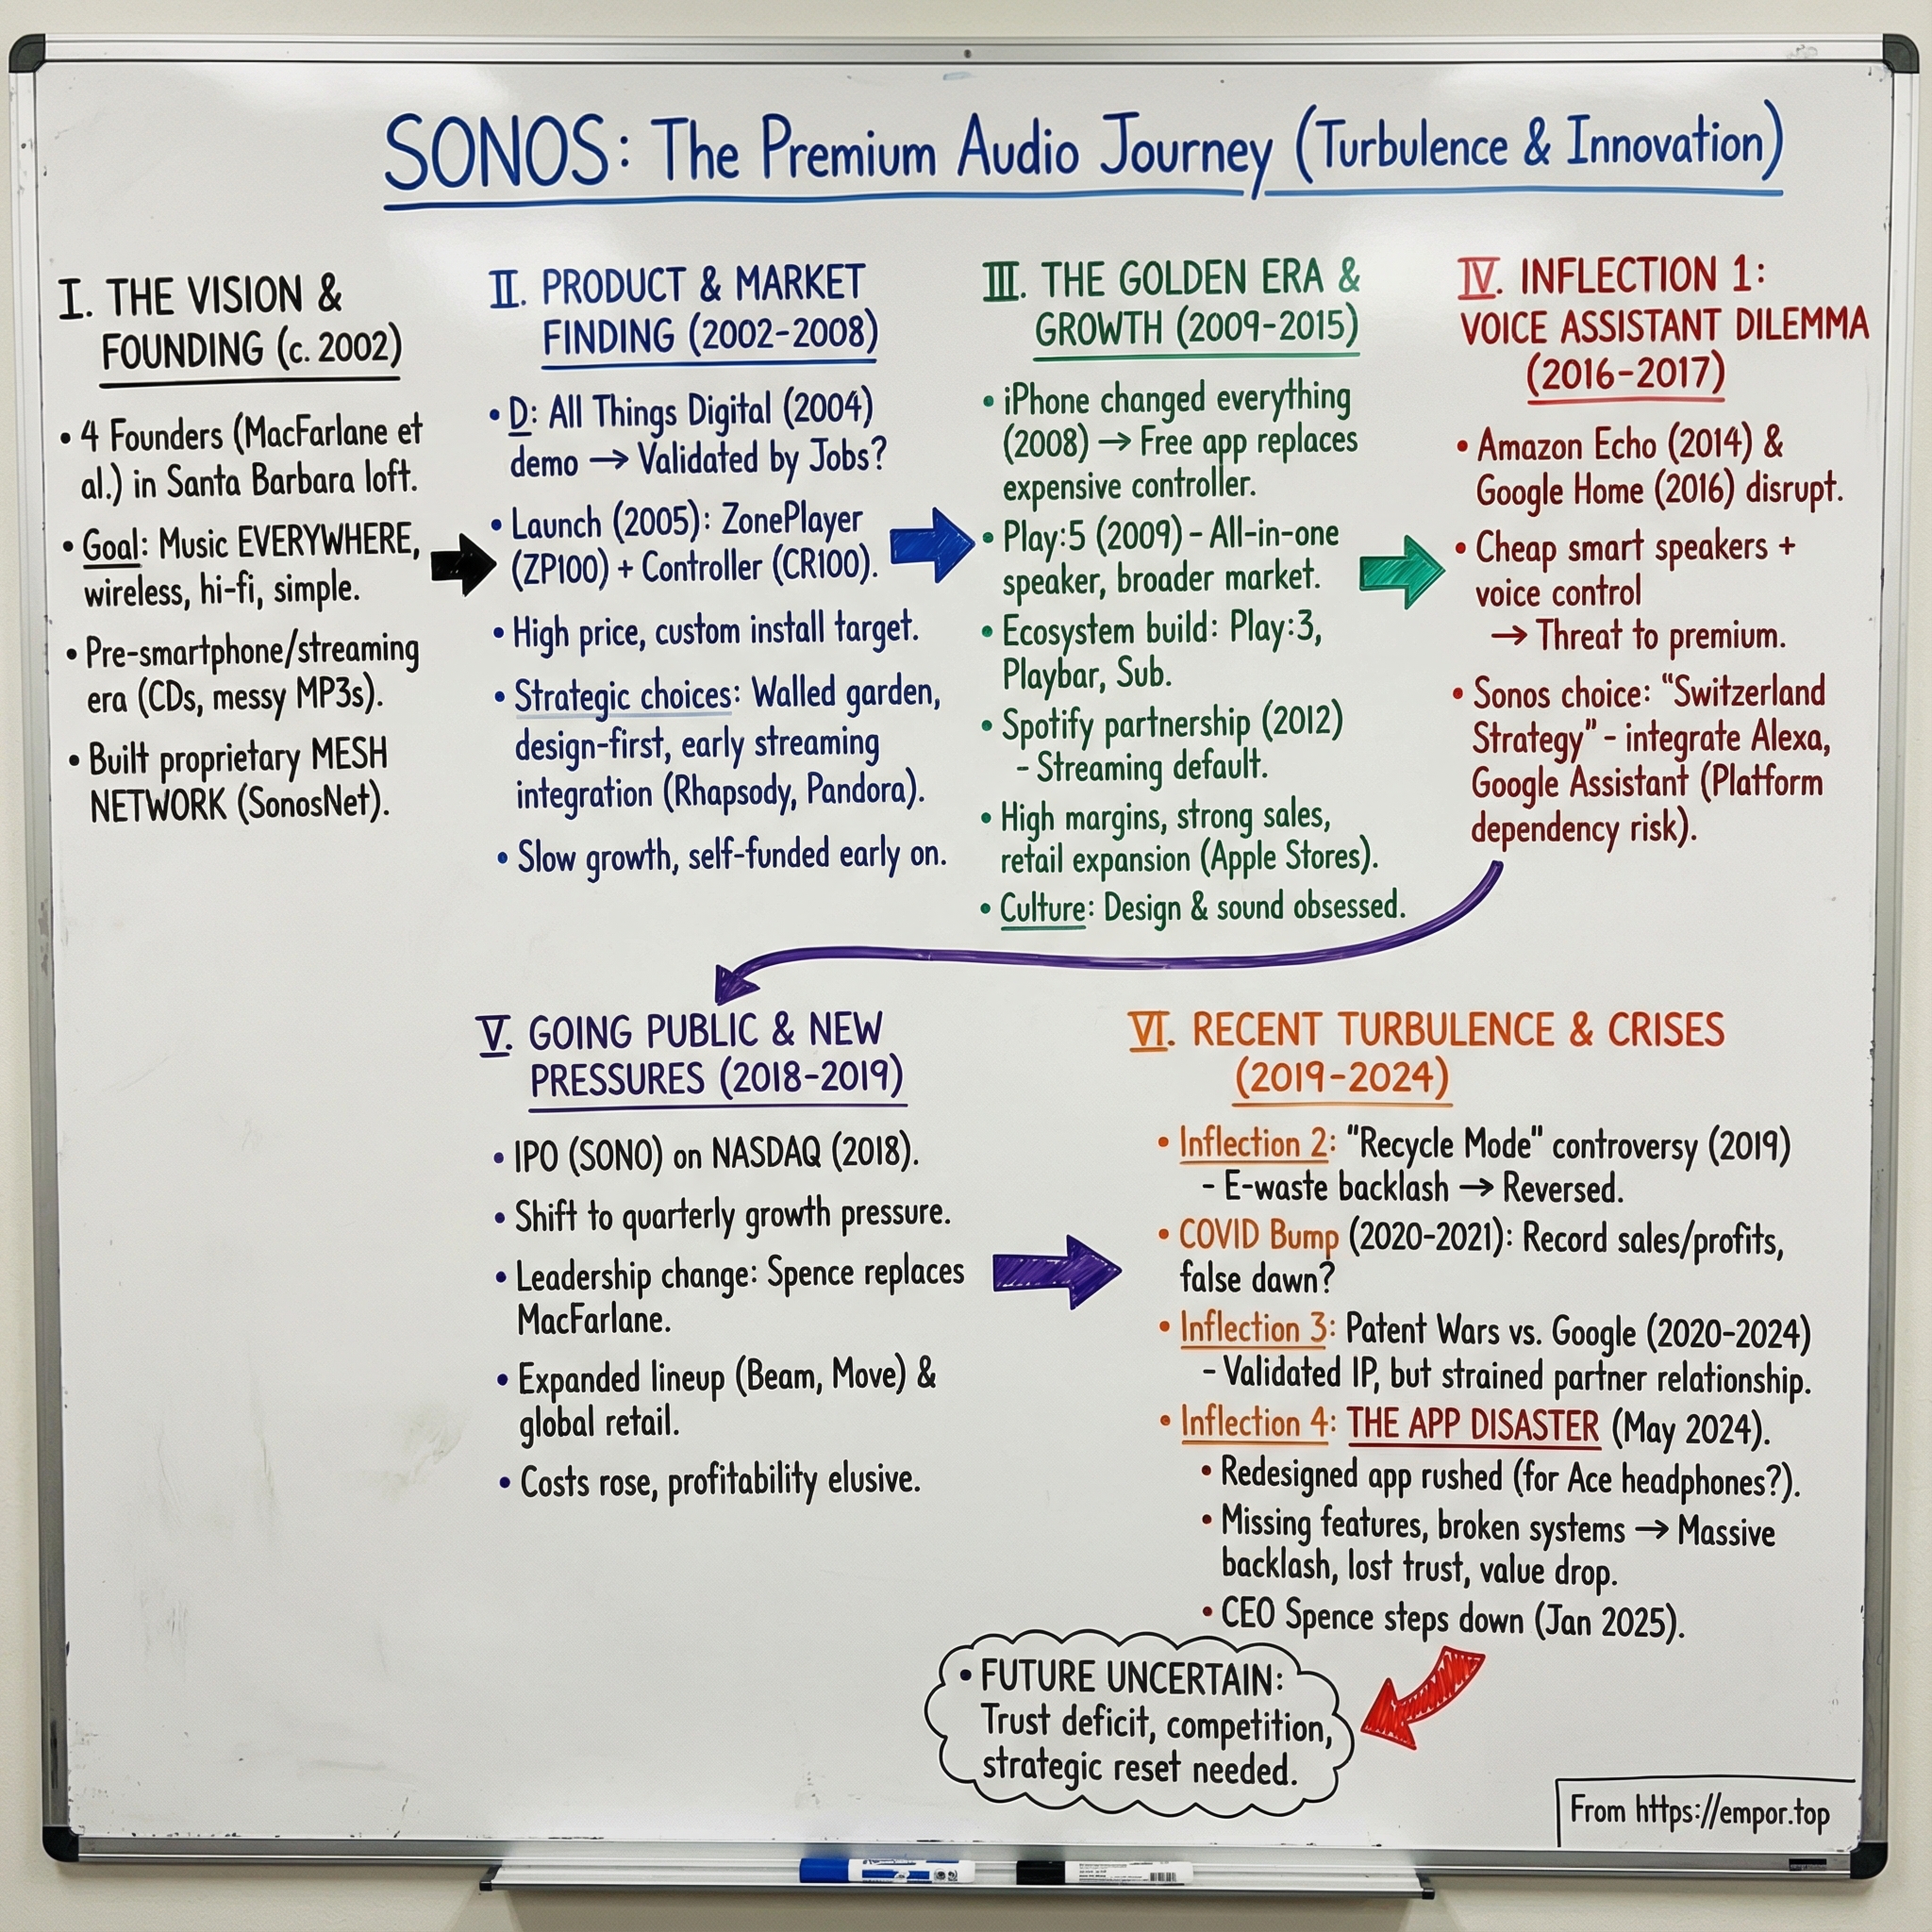 SONOS: The Premium Audio Journey (Turbulence & Innovation)
I. THE VISION &
FOUNDING (c. 2002)
• 4 Founders (MacFarlane et
al.) in Santa Barbara loft.
• Goal: Music EVERYWHERE,
wireless, hi-fi, simple.
• Pre-smartphone/streaming
era (CDs, messy MP3s).
• Built proprietary MESH
NETWORK (SonosNet).
II. PRODUCT & MARKET
FINDING (2002-2008)
• D: All Things Digital (2004)
demo → Validated by Jobs?
• Launch (2005): ZonePlayer
(ZP100) + Controller (CR100).
• High price, custom install target.
• Strategic choices: Walled garden,
design-first, early streaming
integration (Rhapsody, Pandora).
• Slow growth, self-funded early on.
III. THE GOLDEN ERA &
GROWTH (2009-2015)
• iPhone changed everything
(2008) → Free app replaces
expensive controller.
• Play:5 (2009) - All-in-one
speaker, broader market.
• Ecosystem build: Play:3,
Playbar, Sub.
• Spotify partnership (2012)
- Streaming default.
• High margins, strong sales,
retail expansion (Apple Stores).
• Culture: Design & sound obsessed.
IV. INFLECTION 1:
VOICE ASSISTANT DILEMMA
(2016-2017)
• Amazon Echo (2014) &
Google Home (2016) disrupt.
• Cheap smart speakers +
voice control
→ Threat to premium.
• Sonos choice: "Switzerland
Strategy" - integrate Alexa,
Google Assistant (Platform
dependency risk).
V. GOING PUBLIC & NEW
PRESSURES (2018-2019)
• IPO (SONO) on NASDAQ (2018).
• Shift to quarterly growth pressure.
• Leadership change: Spence replaces
MacFarlane.
• Expanded lineup (Beam, Move) &
global retail.
• Costs rose, profitability elusive.
VI. RECENT TURBULENCE & CRISES
(2019-2024)
• Inflection 2: "Recycle Mode" controversy (2019)
- E-waste backlash → Reversed.
• COVID Bump (2020-2021): Record sales/profits,
false dawn?
• Inflection 3: Patent Wars vs. Google (2020-2024)
- Validated IP, but strained partner relationship.
• Inflection 4: THE APP DISASTER (May 2024).
• Redesigned app rushed (for Ace headphones?).
• Missing features, broken systems → Massive
backlash, lost trust, value drop.
• CEO Spence steps down (Jan 2025).
• FUTURE UNCERTAIN:
Trust deficit, competition,
strategic reset needed.
From https://empor.top